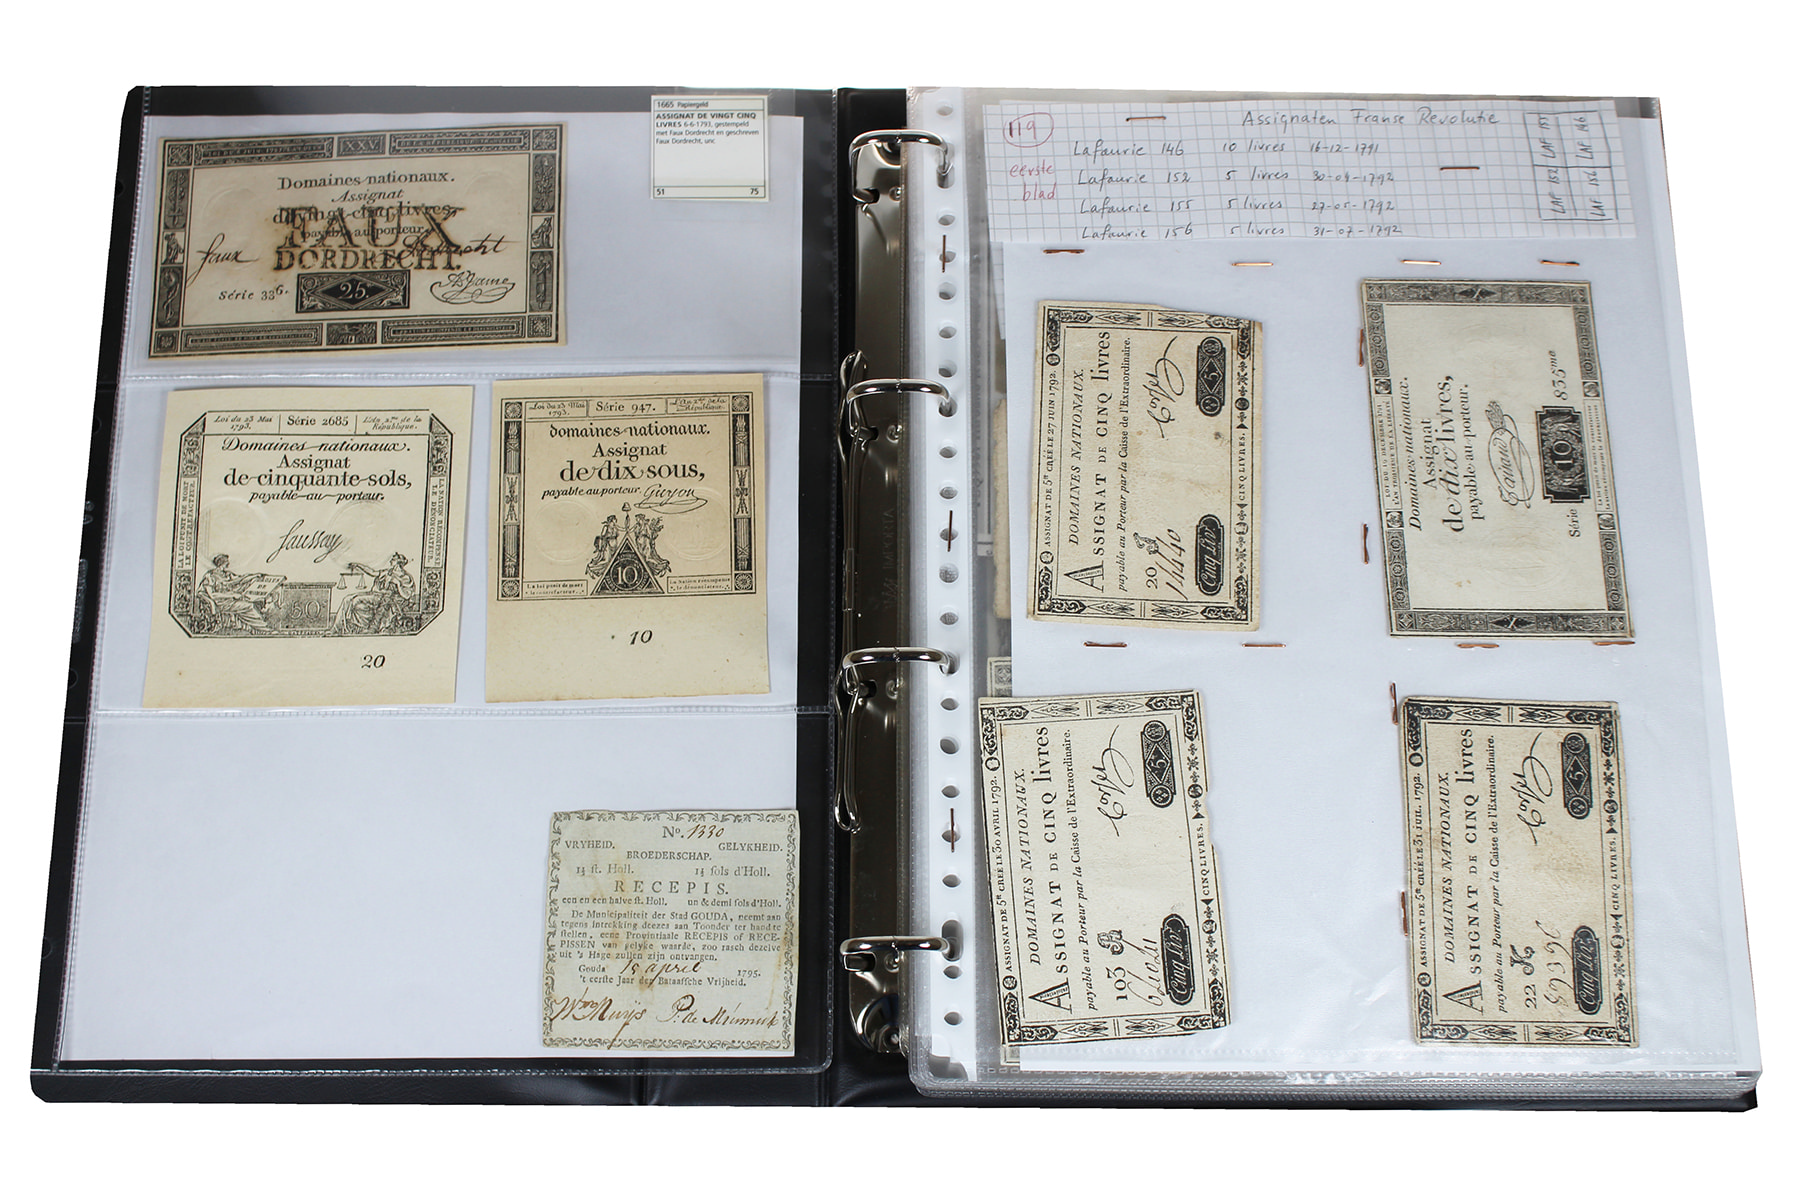 1665 Papiergeld
ASSIGNAT DE VINGT CINQ
LIVRES 6-6-1793, gestempeld
met Faux Dordrecht en geschreven
Faux Dordrecht, unc
51 75
XXV
Domaines nationaux.
Assignat
de vingt-cinq livres,
payable au porteur.
FAUX
DORDRECHT.
faux Dordrecht
Série 336.
25.
A. Jame
Loi du 23 Mai
1793.
Série 2685
L'An 2me de la
République.
Domaines nationaux.
Assignat
de cinquante sols,
payable au porteur.
LA LOI PUNIT DE MORT
LE CONTREFACTEUR
LA NATION RECOMPENSE
LE DENONCIATEUR
Saussay
50
20
Loi du 23 Mai
1793.
Série 947.
L'an 2me de la
République.
domaines nationaux.
Assignat
de dix sous,
payable au porteur.
Guyon
10
La loi punit de mort
le contrefacteur.
La Nation recompense
le dénonciateur.
10
No. 1330
VRYHEID. GELYKHEID.
BROEDERSCHAP.
1½ st. Holl. 1½ sols d'Holl.
RECEPIS.
een en een halve st. Holl. un & demi sols d'Holl.
De Municipaliteit der Stad GOUDA, neemt aan
tegens intrekking deezes aan Toonder ter hand te
stellen, eene Provintiaale RECEPIS of RECE-
PISSEN van gelyke waarde, zoo rasch dezelve
uit 's Hage zullen zijn ontvangen.
Gouda 15 april 1795.
't eerste Jaar der Bataafsche Vrijheid.
119
eerste
blad
Assignaten Franse Revolutie
Lafaurie 146 10 livres 16-12-1791
Lafaurie 152 5 livres 30-04-1792
Lafaurie 155 5 livres 27-05-1792
Lafaurie 156 5 livres 31-07-1792
LAF 152
LAF 155
LAF 156
LAF 146
ASSIGNAT DE 5# CRÉÉ LE 27 JUIN 1792.
DOMAINES NATIONAUX.
ASSIGNAT DE CINQ livres
payable au Porteur par la Caisse de l'Extraordinaire.
20 A
14440
Corsel
5
Cinq Livr
CINQ LIVRES.
LOI DU 16 DÉCEMBRE 1791
L'AN TROISIEME DE LA LIBERTÉ
Domaines nationaux.
Assignat
de dix livres,
payable au porteur.
Taisaud
Série 10 835me
ASSIGNAT DE 5# CRÉÉ LE 30 AVRIL 1792.
DOMAINES NATIONAUX.
ASSIGNAT DE CINQ livres
payable au Porteur par la Caisse de l'Extraordinaire.
103 A
62024
Corsel
5
Cinq Livr
CINQ LIVRES.
ASSIGNAT DE 5# CRÉÉ LE 31 JUIL. 1792.
DOMAINES NATIONAUX.
ASSIGNAT DE CINQ livres
payable au Porteur par la Caisse de l'Extraordinaire.
22 K
Corsel
5
Cinq Livr
CINQ LIVRES.